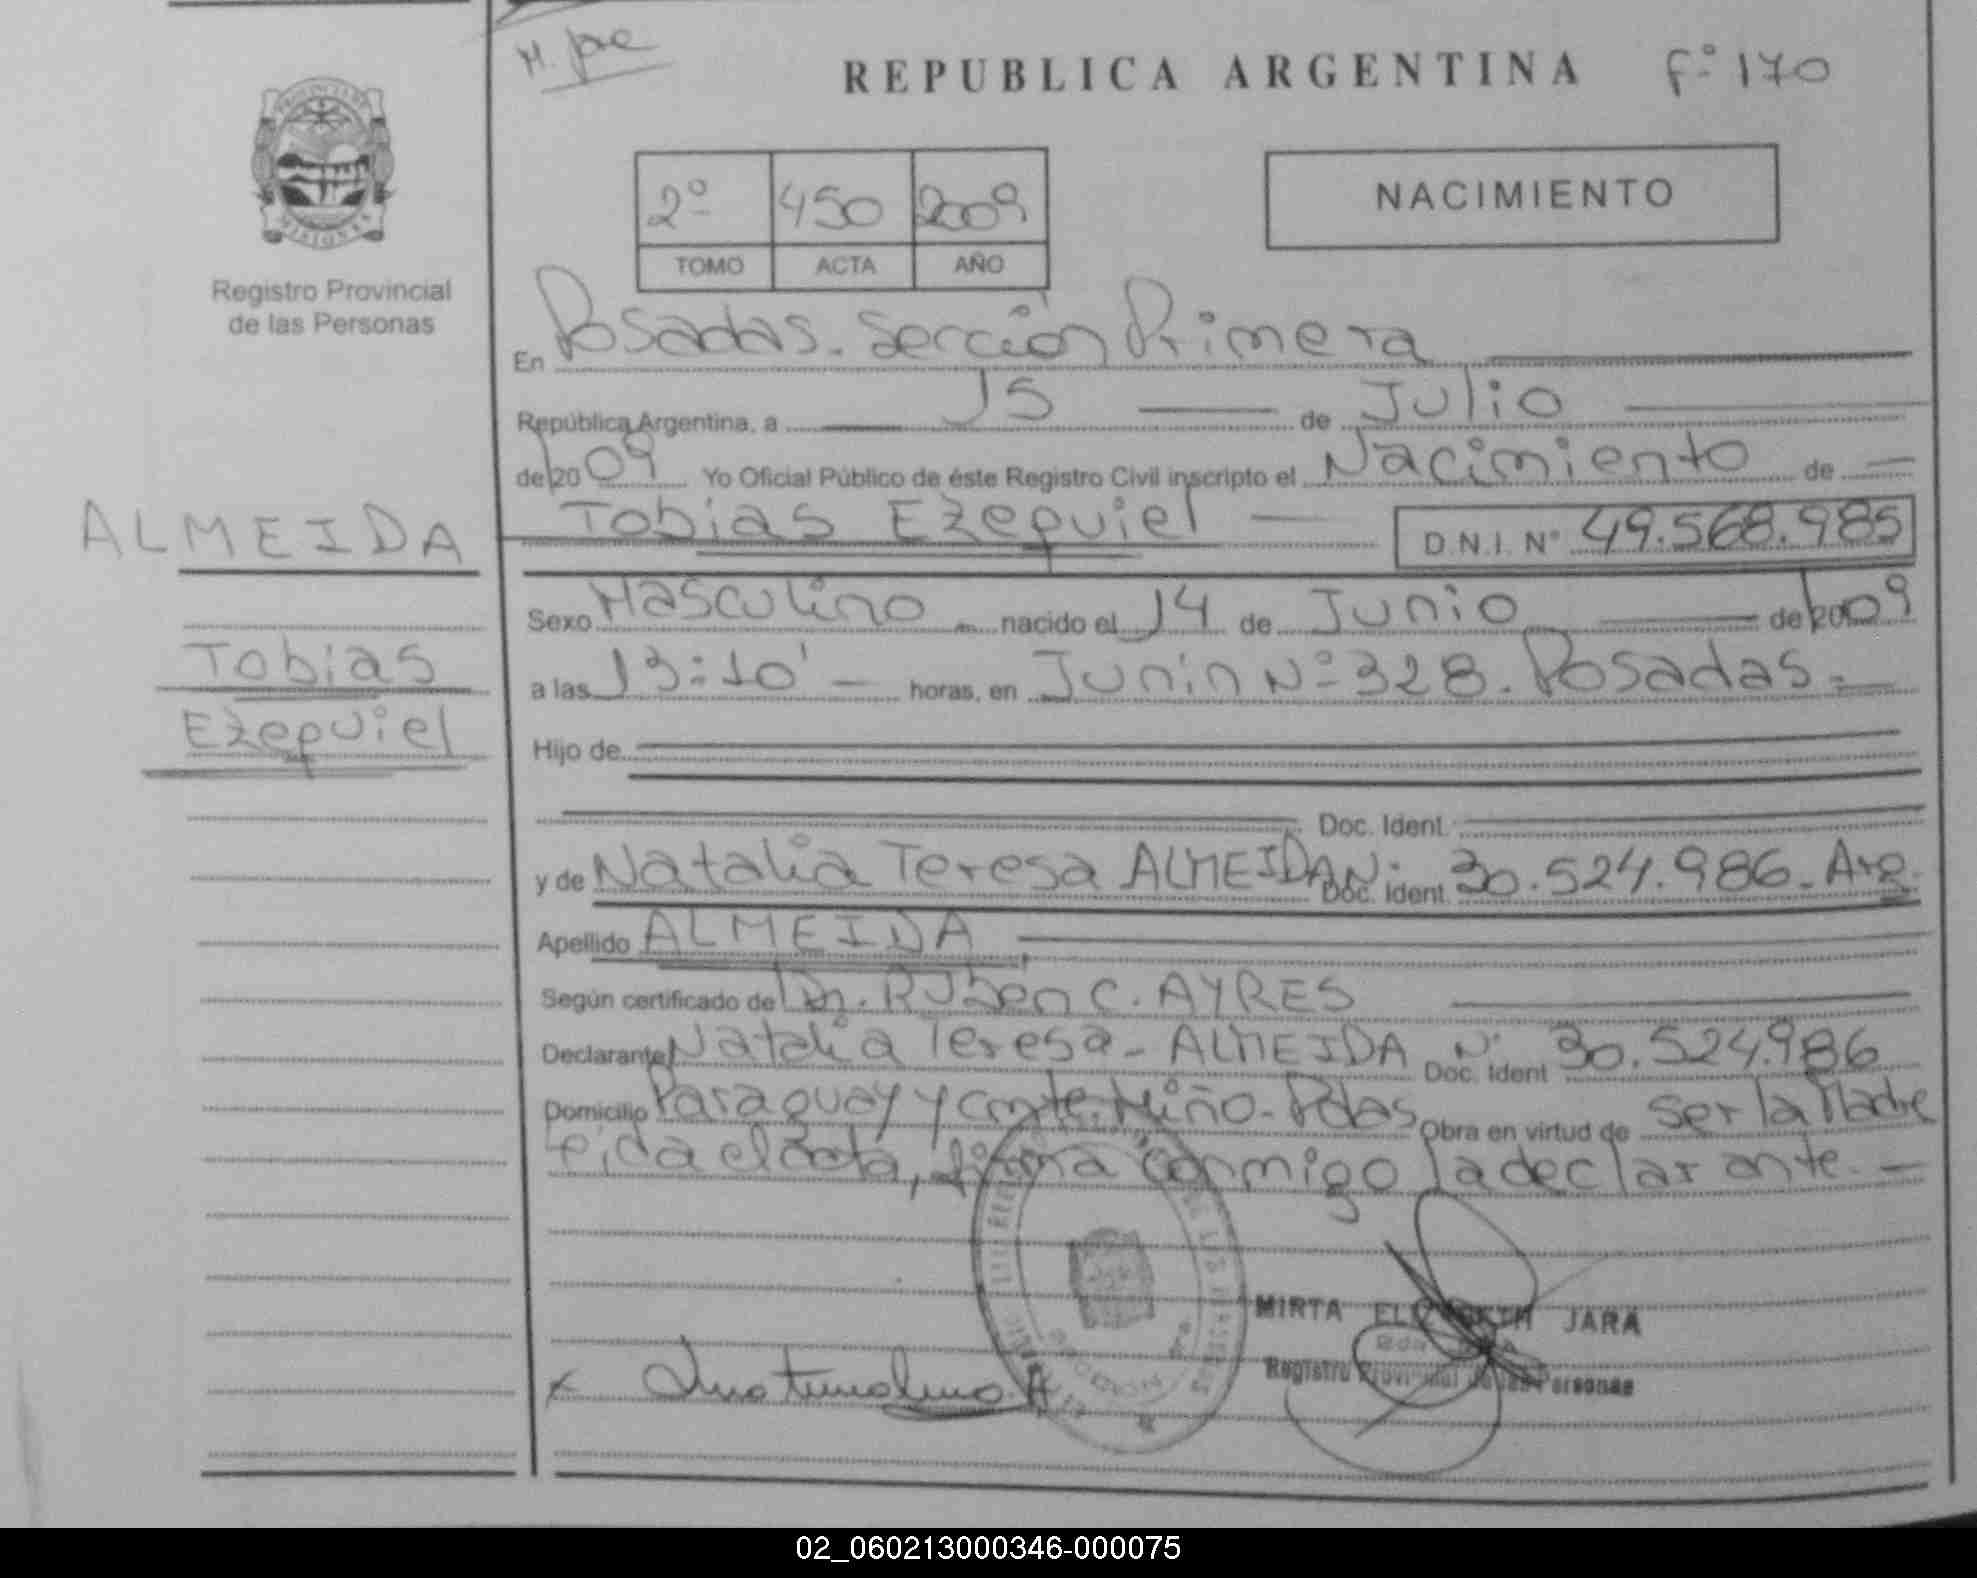 M. José
REPUBLICA ARGENTINA Fº 170
PROVINCIA DE
MISIONES
Registro Provincial
de las Personas
2º 450 2009
TOMO ACTA AÑO
NACIMIENTO
En Posadas. Sección Primera
República Argentina, a 15 de Julio
de 2009 Yo Oficial Público de éste Registro Civil inscripto el Nacimiento de
Tobias Ezequiel D.N.I. Nº 49.568.985
ALMEIDA
Tobias
Ezequiel
Sexo Masculino nacido el 14 de Junio de 2009
a las 13:10' horas, en Junín Nº 328. Posadas.
Hijo de
Doc. Ident.
y de Natalia Teresa ALMEIDA Doc. Ident. Nº 30.524.986. Arg.
Apellido ALMEIDA
Según certificado de Dr. Ruben C. AYRES
Declarante Natalia Teresa ALMEIDA Doc. Ident Nº 30.524.986
Domicilio Paraguay y Miño. Pdas Obra en virtud de ser la Madre
leida el acta, firma conmigo la declarante.
MIRTA ELIZABETH JARA
Registro Provincial de las Personas
x
02_060213000346-000075